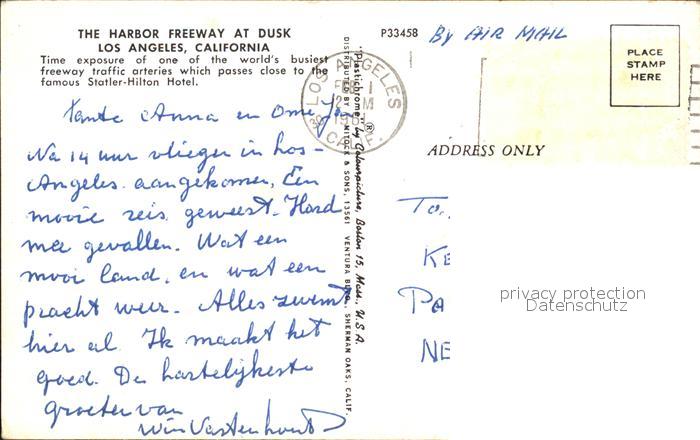 THE HARBOR FREEWAY AT DUSK
LOS ANGELES, CALIFORNIA
Time exposure of one of the world's busiest
freeway traffic arteries which passes close to the
famous Statler-Hilton Hotel.
P33458
By AIR MAIL
PLACE
STAMP
HERE
LOS ANGELES
CALIF.
"Plastichrome"® by Colourpicture, Boston 15, Mass., U.S.A.
DISTRIBUTED BY MITOCK & SONS, 13561 VENTURA BLVD., SHERMAN OAKS, CALIF.
ADDRESS ONLY
Tante Anna en Ome
Na 14 uur vliegen in Los-
Angeles aangekomen, Een
mooie reis geweest. Hard
mee gevallen. Wat een
mooi land, en wat een
pracht weer. Alles zwemt
hier al. Ik maakt het
goed. De hartelijkste
groeten van
Wim Vastenhout
To.
KE
PA
NE
privacy protection
Datenschutz